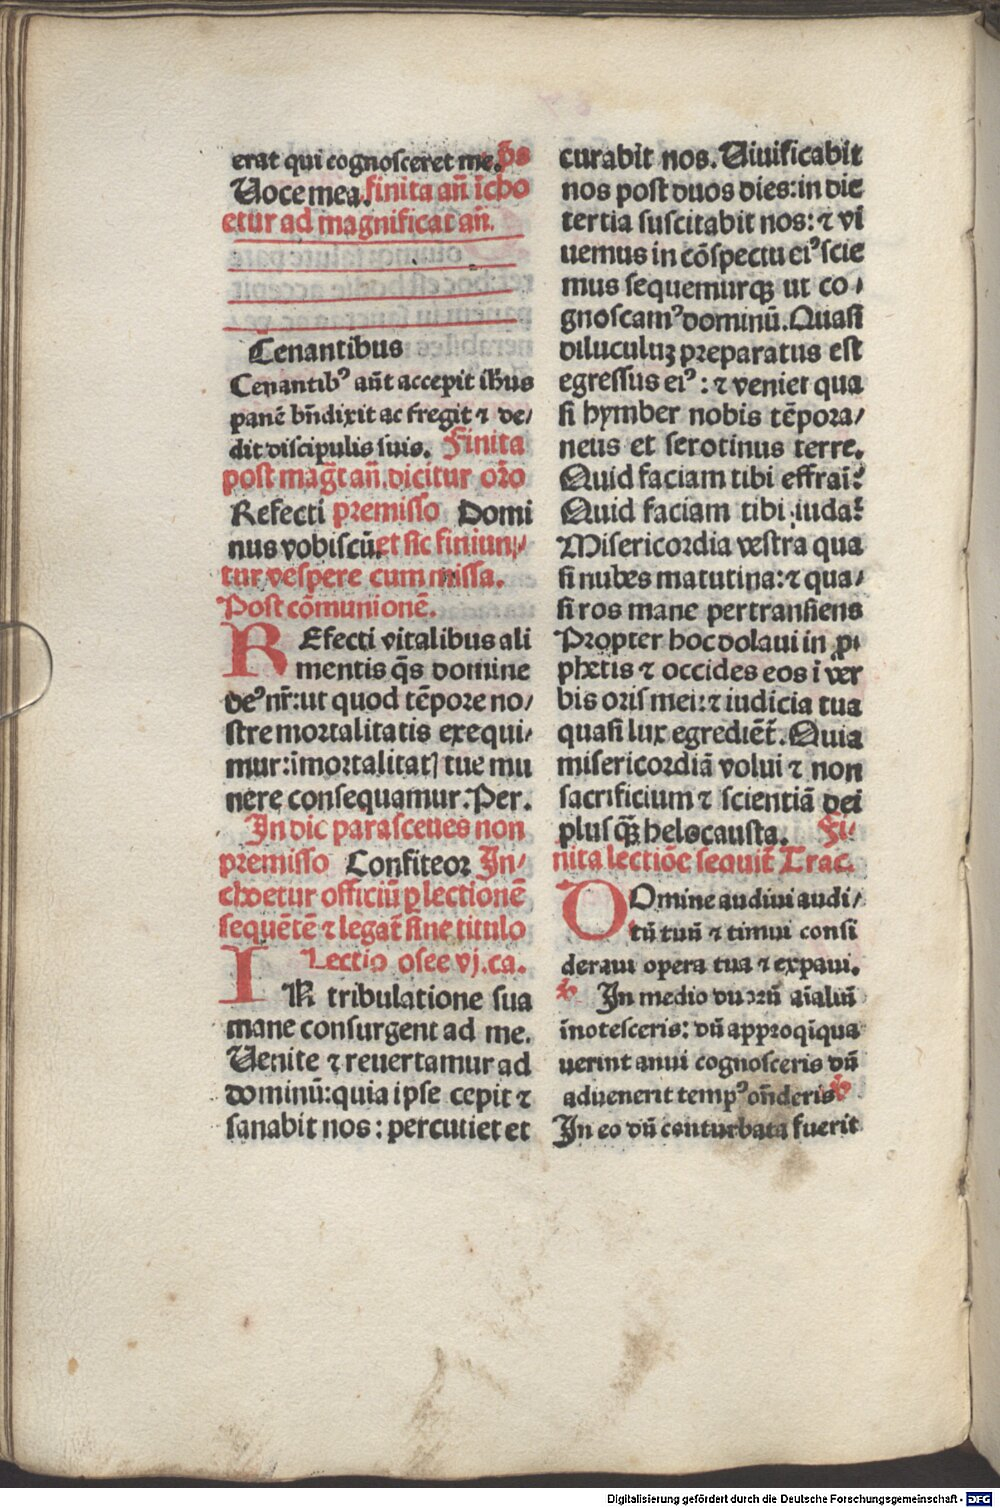 erat qui cognosceret me. p̄s
Uoce mea. finita an̄ īcho
etur ad magnificat an̄.
Cenantibus
Cenantibꝰ aūt accepit ihūs
panē bn̄dixit ac fregit ⁊ de/
dit discipulis suis. Finita
post mag̃t an̄. dicitur oṙo
Refecti premisso Domi
nus vobiscū. et sic finiun/
tur vespere cum missa.
Post cōmunionē.
REfecti vitalibus ali
mentis q̄s domine
deꝰ nr̄: ut quod tēpore no/
stre mortalitatis exequi/
mur: īmortalitatꝭ tue mu
nere consequamur. Per.
In die parasceues non
premisso Confiteor In/
choetur officiū ꝑ lectionē
sequētē ⁊ legat̄ sine titulo
Lectio osee vj. ca.
IN tribulatione sua
mane consurgent ad me.
Uenite ⁊ reuertamur ad
dominū: quia ipse cepit ⁊
sanabit nos: percutiet et
curabit nos. Uiuificabit
nos post duos dies: in die
tertia suscitabit nos: ⁊ vi
uemus in cōspectu eiꝰ scie
mus sequemurqꝫ ut co/
gnoscamꝰ dominū. Quasi
diluculuꝫ preparatus est
egressus eiꝰ: ⁊ veniet qua
si hymber nobis tēpora/
neus et serotinus terre.
Quid faciam tibi effrai?
Quid faciam tibi iuda?
Misericordia vestra qua
si nubes matutina: ⁊ qua/
si ros mane pertransiens
Propter hoc dolaui in ꝓ/
phetis ⁊ occides eos ī ver
bis oris mei: ⁊ iudicia tua
quasi lux egrediēt̄. Quia
misericordiā volui ⁊ non
sacrificium ⁊ scientiā dei
plus qꝫ̄ holocausta. Fi/
nita lectiōe sequit̄ Trac.
DOmine audiui audi/
tū tuū ⁊ timui consi
deraui opera tua ⁊ expaui.
v̄ In medio duorū aīaliū
īnotesceris: dū appropīqua
uerint anni cognosceris dū
aduenerit tempꝰ on̄deris v̄
In eo dū conturbata fuerit
Digitalisierung gefördert durch die Deutsche Forschungsgemeinschaft - DFG